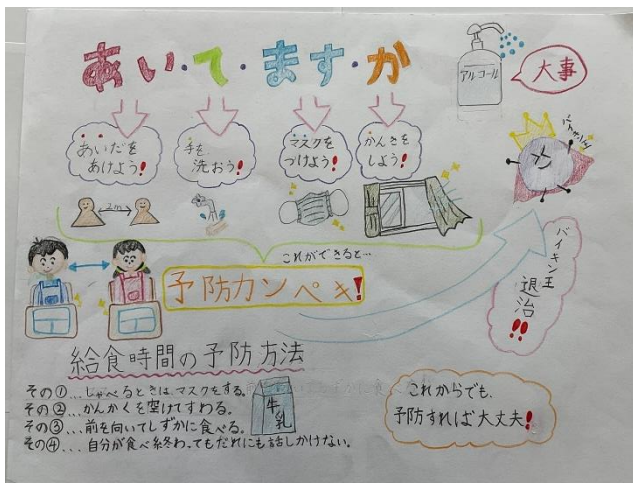 あい・て・ます・か
アルコール
大事
あいだを
あけよう!
手を
洗おう!
マスクを
つけよう!
かんきを
しよう!
2m
これができると…
予防カンペキ!
バイキン王
退治!!
給食時間の予防方法
その①…しゃべるときは、マスクをする。
その②…かんかくを空けてすわる。
その③…前を向いてしずかに食べる。
その④…自分が食べ終わってもだれにも話しかけない。
牛乳
これからでも、
予防すれば大丈夫!